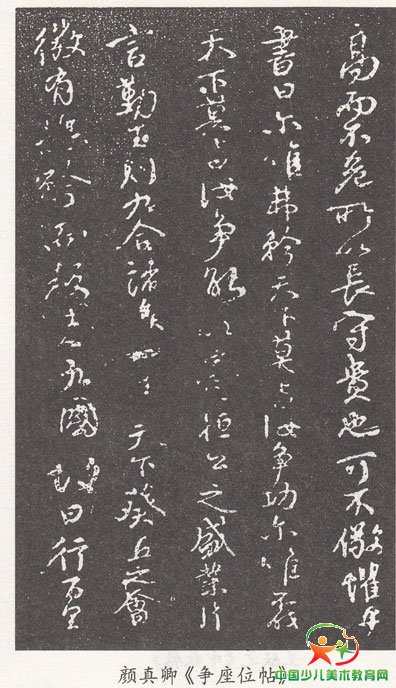 高而不危所以長守貴也可不儆懼乎
書曰尔唯弗矜天下莫与汝争功尔唯
天下莫与汝争能以齊桓公之盛業片
言勤王則九合諸侯一匡天下葵丘之會
微有振矜而叛者九國故曰行百里
颜真卿《争座位帖》
中国少儿美术教育网